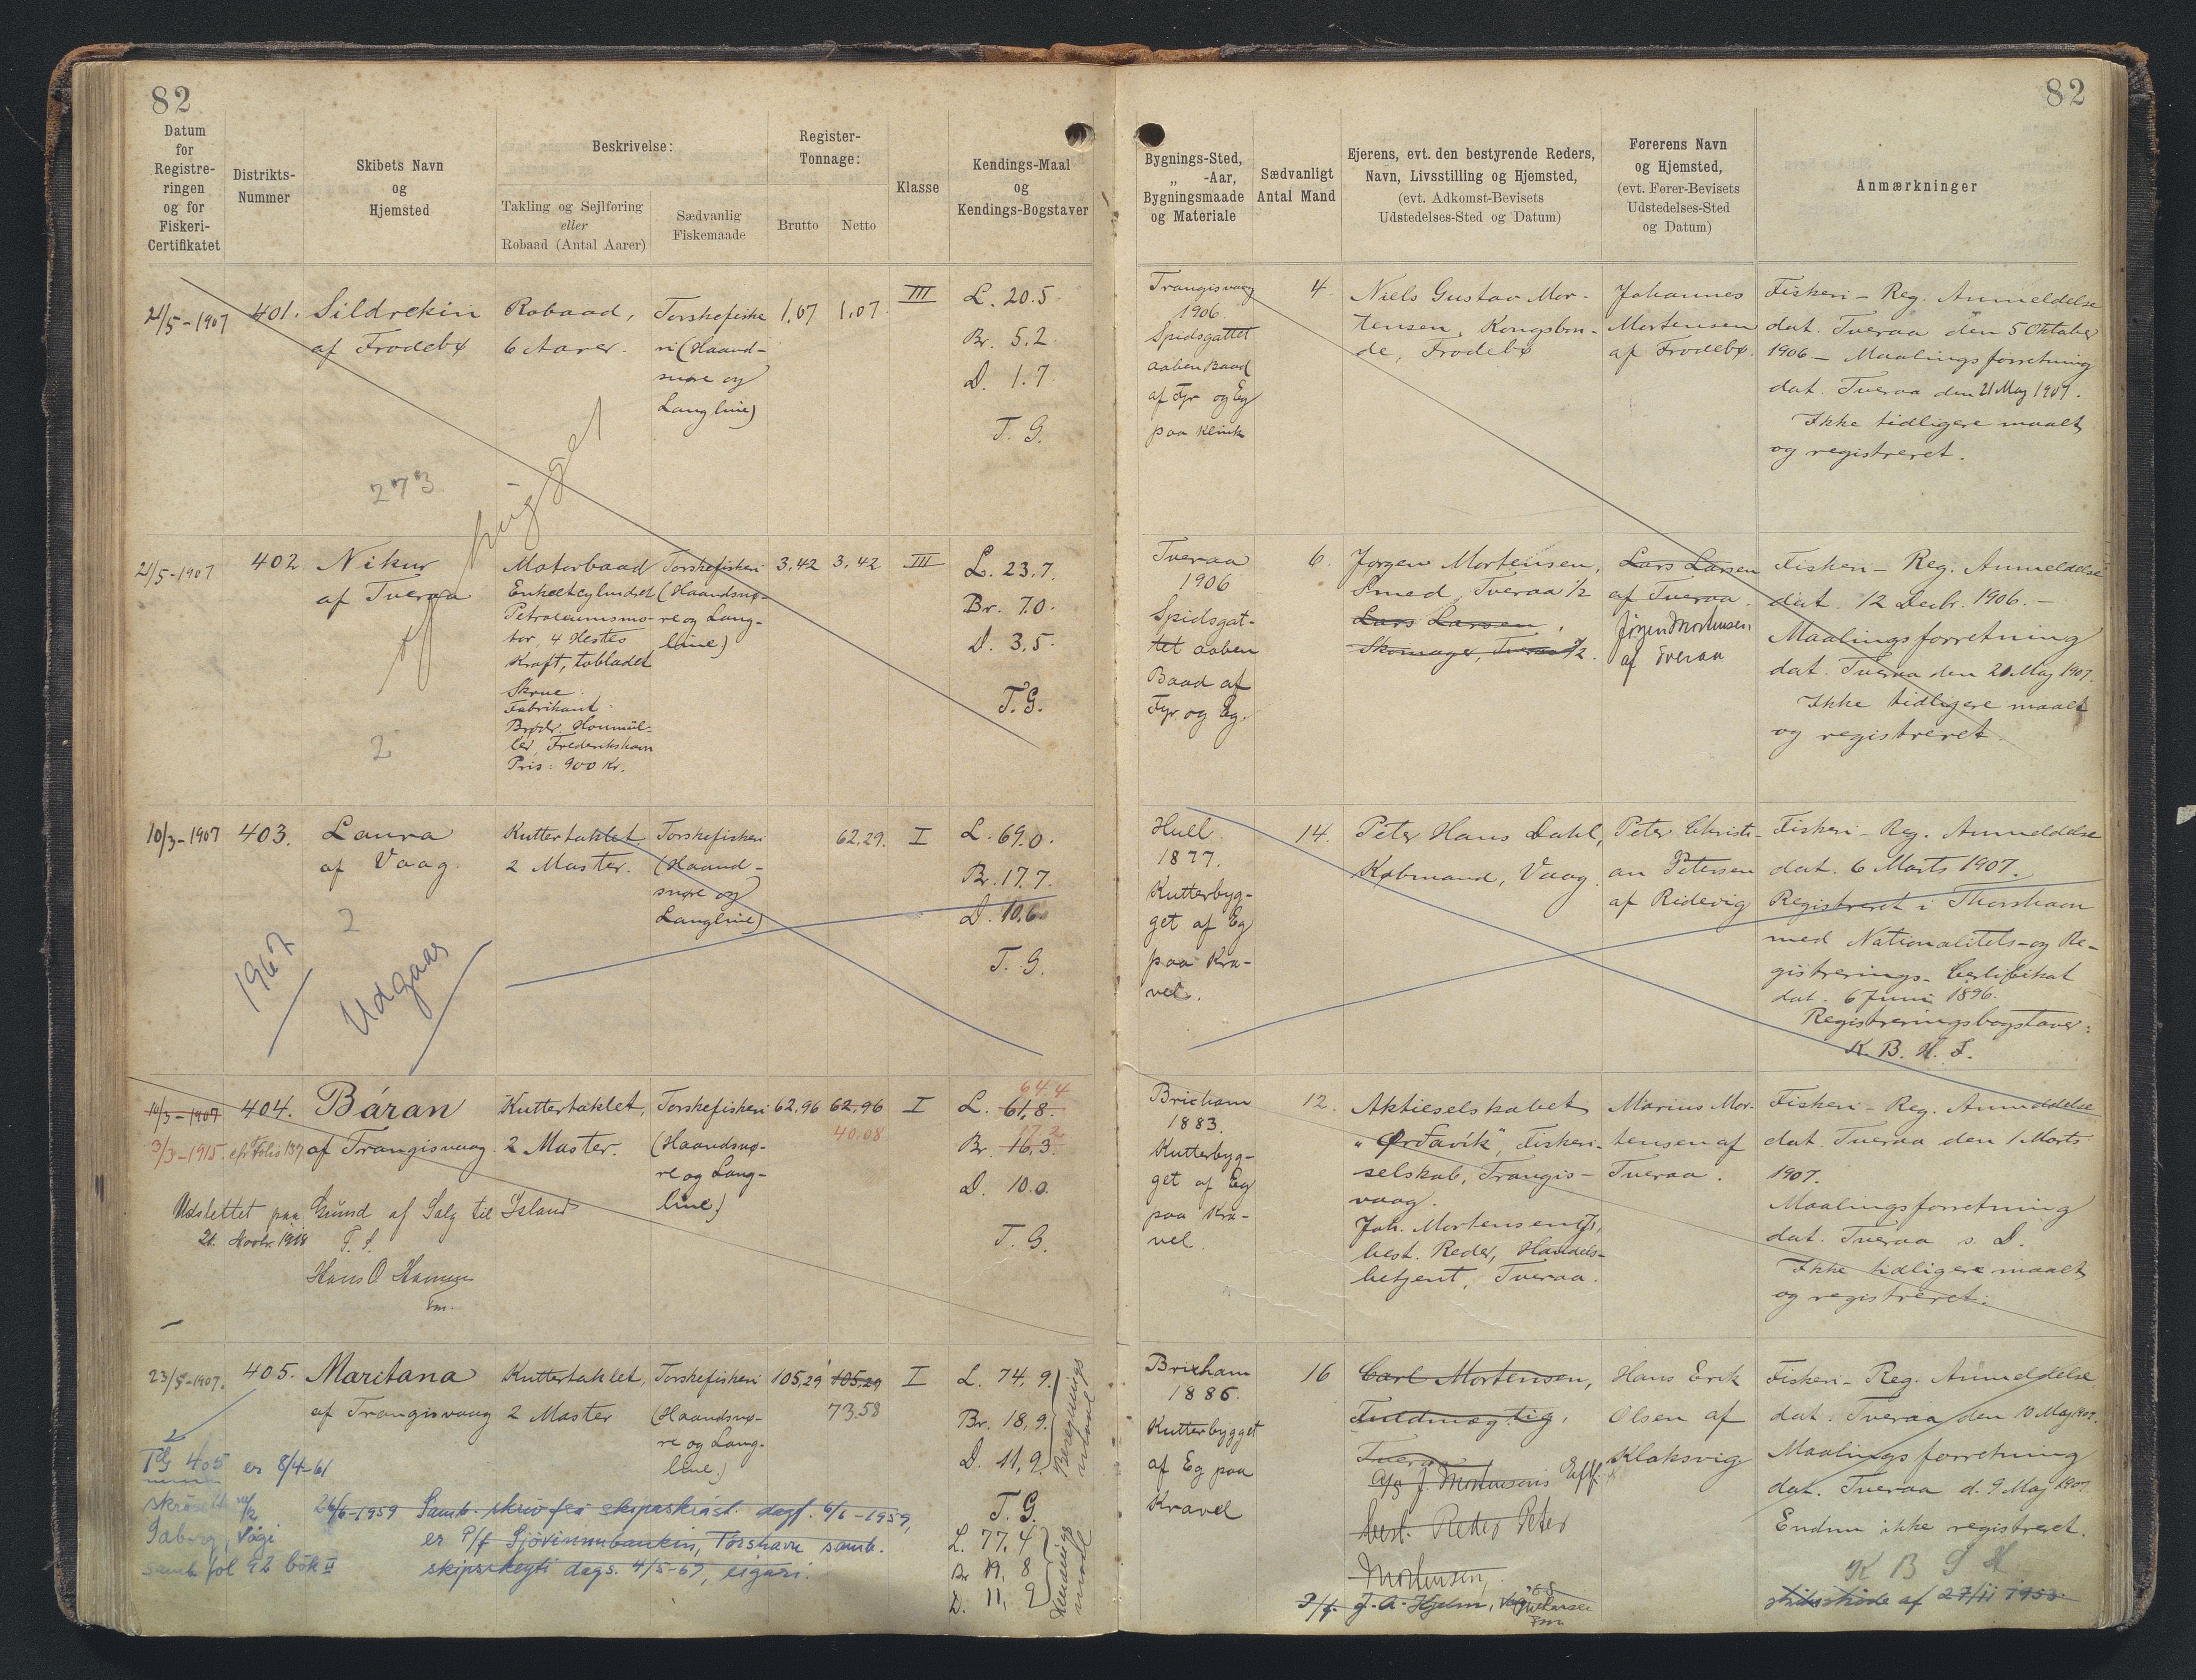 82
82
Datum
for
Registre-
ringen
og for
Fiskeri-
Certifikatet
Distrikts-
Nummer
Skibets Navn
og
Hjemsted
Beskrivelse:
Takling og Sejlføring
eller
Robaad (Antal Aarer)
Sædvanlig
Fiskemaade
Register-
Tonnage:
Brutto
Netto
Klasse
Kendings-Maal
og
Kendings-Bogstaver
Bygnings-Sted,
„ -Aar,
Bygningsmaade
og Materiale
Sædvanligt
Antal Mand
Ejerens, evt. den bestyrende Reders,
Navn, Livsstilling og Hjemsted,
(evt. Adkomst-Bevisets
Udstedelses-Sted og Datum)
Førerens Navn
og Hjemsted,
(evt. Fører-Bevisets
Udstedelses-Sted
og Datum)
Anmærkninger
21/5-1907
401.
Sildrekin
af Frodebø
273
Robaad,
6 Aarer.
Torskefiske
ri (Haand-
snøre og
Langline)
1,07
1,07
III
L. 20.5
Br. 5.2
D. 1.7
T. G.
Trangisvaag
1906
Spidsgattet
aaben Baad
af Fyr og Eg
paa Klink
4
Niels Gustav Mor-
tensen, Kongsbon-
de, Frodebø
Johannes
Mortensen
af Frodebø.
Fiskeri-Reg. Anmeldelse
dat. Tveraa den 5 Oktober
1906 - Maalingsforretning
dat. Tveraa den 21 Maj 1907.
Ikke tidligere maalt
og registreret.
21/5-1907
402
Nikur
af Tveraa
2
Motorbaad
Enkeltcylindret
Petroleumsmo-
tor, 4 Hestes
Kraft, tobladet
Skrue.
Fabrikant:
Brødr. Houmöl-
ler, Frederikshavn
Pris: 900 Kr.
Torskefiskeri
(Haandsnø-
re og Lang-
line)
3,42
3,42
III
L. 23,7.
Br. 7.0.
D. 3,5.
T.G.
Tveraa
1906
Spidsgat-
tet aaben
Baad af
Fyr og Eg.
6.
Jørgen Mortensen,
Smed, Tveraa 1/2
Lars Larsen,
Skomager, Tveraa 1/2.
Lars Larsen
af Tveraa.
Jørgen Mortensen
af Tveraa
Fiskeri-Reg. Anmeldelse
dat. 12 Decbr. 1906.-
Maalingsforretning
dat. Tveraa den 20 Maj 1907.
Ikke tidligere maalt
og registreret
10/3-1907
403.
Laura
af Vaag.
2
1967
Udgaas
Kuttertaklet
2 Master.
Torskefiskeri
(Haand-
snøre og
Langline)
62,29.
I
L. 69.0.
Br. 17.7.
D. 10,6.
T. G.
Hull.
1877.
Kutterbyg-
get af Eg
paa Kra-
vel.
14.
Peter Hans Dahl,
Købmand, Vaag.
Peter Christi-
an Petersen
af Ridevig
Fiskeri-Reg. Anmeldelse
dat. 6 Marts 1907.
Registreret i Thorshavn
med Nationalitets- og Re-
gistrerings-Certifikat
dat. 6 Juni 1896.
Registreringsbogstaver:
10/3-1907
3/3-1915.
404.
Báran
af Trangisvaag.
Udslettet paa Grund af Salg til Island
21. Novbr. 1918
Kuttertaklet,
2 Master.
Torskefiskeri
(Haandsnø-
re og Lang-
line)
62,96
62,96
40.08
I
L. 61,8. 64.4
Br. 16,3. 17.2
D. 10.0.
T. G.
Brixham
1883.
Kutterbyg-
get af Eg
paa Kra-
vel.
12.
Aktieselskabet
"Ørdavík", Fiskeri-
selskab, Trangis-
vaag.
Joh. Mortensen,
best. Reder, Handels-
betjent, Tveraa.
Marius Mor-
tensen af
Tveraa.
Fiskeri-Reg. Anmeldelse
dat. Tveraa den 1 Marts
1907.
Maalingsforretning
dat. Tveraa s. D.
Ikke tidligere maalt
og registreret.
23/5-1907.
405.
Maritana
af Trangisvaag
TG 405 er 8/4-61
Kuttertaklet,
2 Master
Torskefiskeri
(Haandsnø-
re og Lang-
line)
105,29
105,29
73.58
I
L. 74,9.
Br. 18,9.
D. 11,9.
Beregnings
maal
T.G.
L. 77,4
Br 19,8
D. 11,9
Kendings
maal
26/6-1959 Samb. skriv frá skipaskrást. dagf. 6/6-1959,
er P/f Sjóvinnubankin, Tórshavn samb.
skipsskeyti dags. 4/5-57, eigari.
Brixham
1886.
Kutterbygget
af Eg paa
Kravel
16
Carl Mortensen,
Fuldmægtig,
Tveraa
A/S J. Mortensens Eftf.
best. Reder Peter
Mortensen,
P/f. J. A. Hjelm,
Hans Erik
Olsen af
Klaksvig
Fiskeri-Reg. Anmeldelse
dat. Tveraa den 10 Maj 1907.
Maalingsforretning
dat. Tveraa d. 9 Maj 1907.
Endnu ikke registreret.
af 27/11 1953.